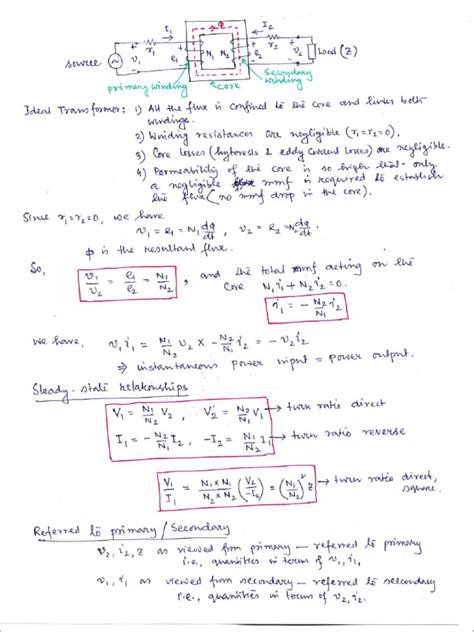 I₁ φ I₂
r₁ r₂
source v₁ e₁ N₁ N₂ e₂ v₂ Load (Z)
primary winding core secondary winding
Ideal Transformer: 1) All the flux is confined to the core and links both
windings.
2) Winding resistances are negligible (r₁=r₂=0).
3) Core losses (hysteresis & eddy current losses) are negligible.
4) Permeability of the core is so high that only
a negligible mmf is required to establish
the flux (no mmf drop in the core).
Since r₁=r₂=0, we have
v₁ = e₁ = N₁ dφ/dt , v₂ = e₂ = N₂ dφ/dt
φ is the resultant flux.
So, v₁/v₂ = e₁/e₂ = N₁/N₂ , and the total mmf acting on the
core N₁i₁ + N₂i₂ = 0
i₁ = - N₂/N₁ i₂
we have, v₁i₁ = N₁/N₂ v₂ × - N₂/N₁ i₂ = - v₂i₂
⇒ instantaneous power input = power output.
Steady-state relationships
V₁ = N₁/N₂ V₂ , V₂ = N₂/N₁ V₁ → turn ratio direct
I₁ = - N₂/N₁ I₂ , -I₂ = N₁/N₂ I₁ → turn ratio reverse
V₁/I₁ = N₁ × N₁/N₂ × N₂ (V₂/-I₂) = (N₁/N₂)² Z → turn ratio direct,
square.
Referred to primary / Secondary
v₂, i₂, Z as viewed from primary – referred to primary
i.e., quantities in terms of v₁, i₁,
v₁, i₁ as viewed from secondary – referred to secondary
i.e., quantities in terms of v₂, i₂.